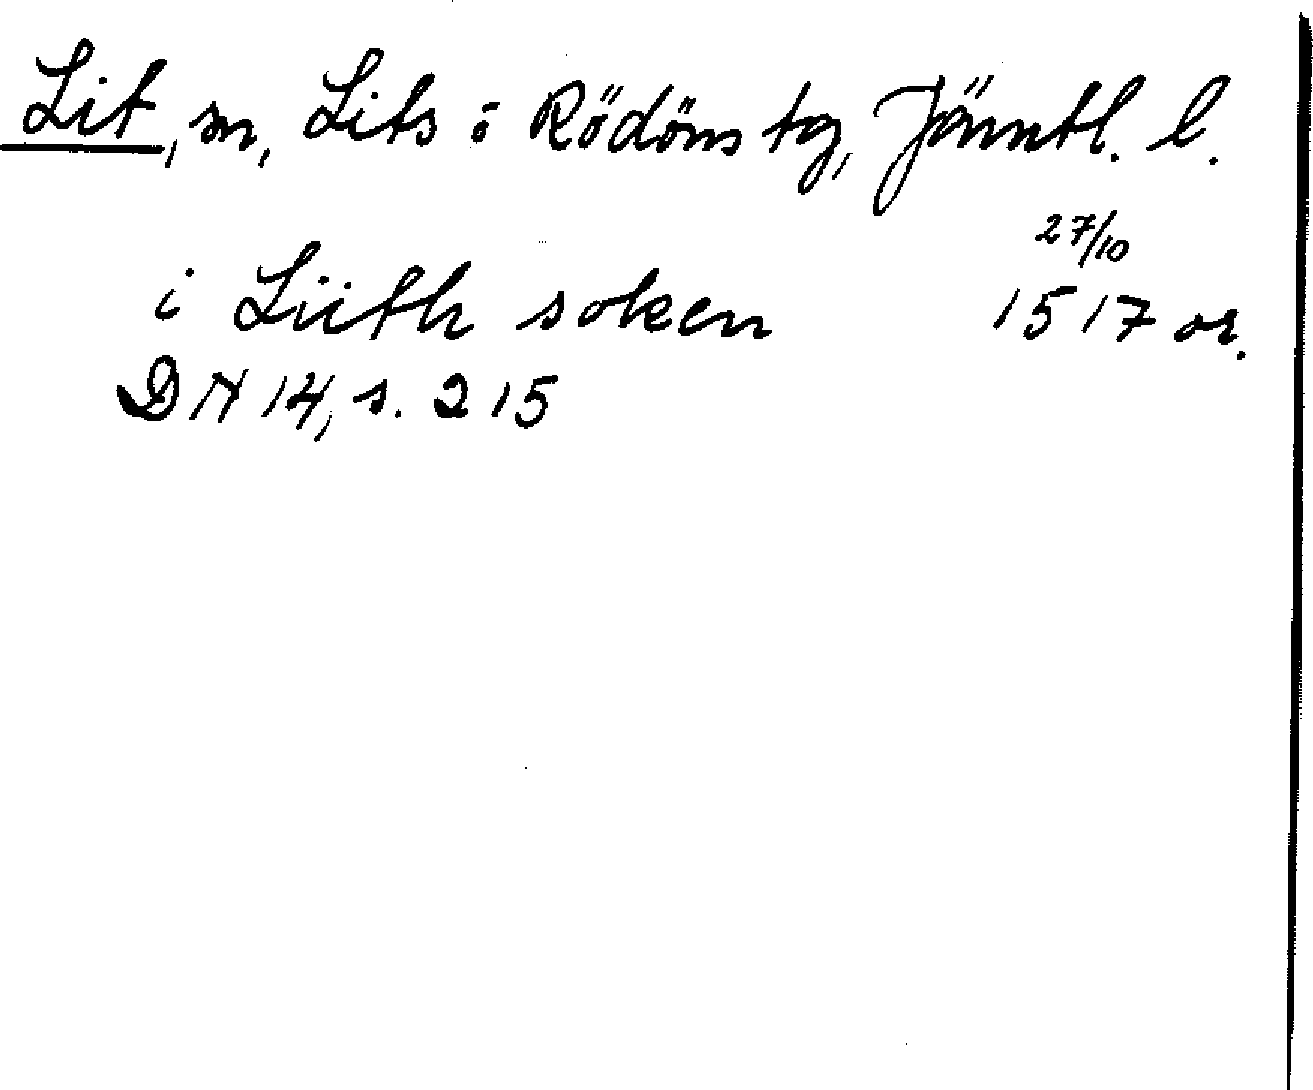 Lit, sn, Lits o Rödöns tg, Jämtl. l.
27/10
i Liith soken 1517 or.
DN 14, s. 215